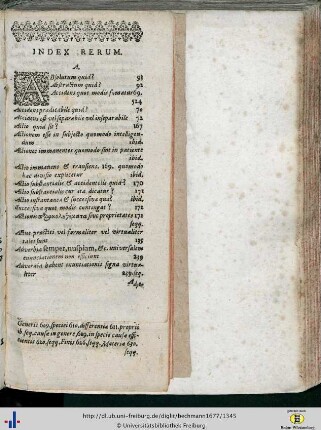 INDEX RERUM.
A.
ABsolutum quid? 93
Abstractum quid? 92
Accidens quot modis sumatur 69.
524
Accidens prædicabile quid? 70
Accidens est vel separabile vel inseparabile 72
Actio quid sit? 167
Actionem esse in subjecto quomodo intelligendum
ibid.
Actiones immanentes quomodo sint in patiente
ibid.
Actio immanens & transiens. 169. quomodo
hæc divisio explicetur ibid.
Actio substantialis & accidentalis quid? 170
Actio substantialis cur ita dicatur? 171
Actio instantanea & successiva quid? ibid.
Successiva quot modis contingat? 172
Actionum sive proprietates 172
seqq.
Actus practici vel formaliter vel virtualiter
tales sunt 135
Adverbia semper, nuspiam, &c. universalem
enuntiationem non efficiunt 239
Adversativa habent enunciationis signa virtualiter
239. seq.
Generis 609. speciei 610. differentiæ 611. proprii
ib. seq. causæ in genere 609. in specie causæ efficientis
620. seqq. Finis 626. seqq. Materiæ 630.
seqq.
http://dl.ub.uni-freiburg.de/diglit/bechmann1677/1345
© Universitätsbibliothek Freiburg